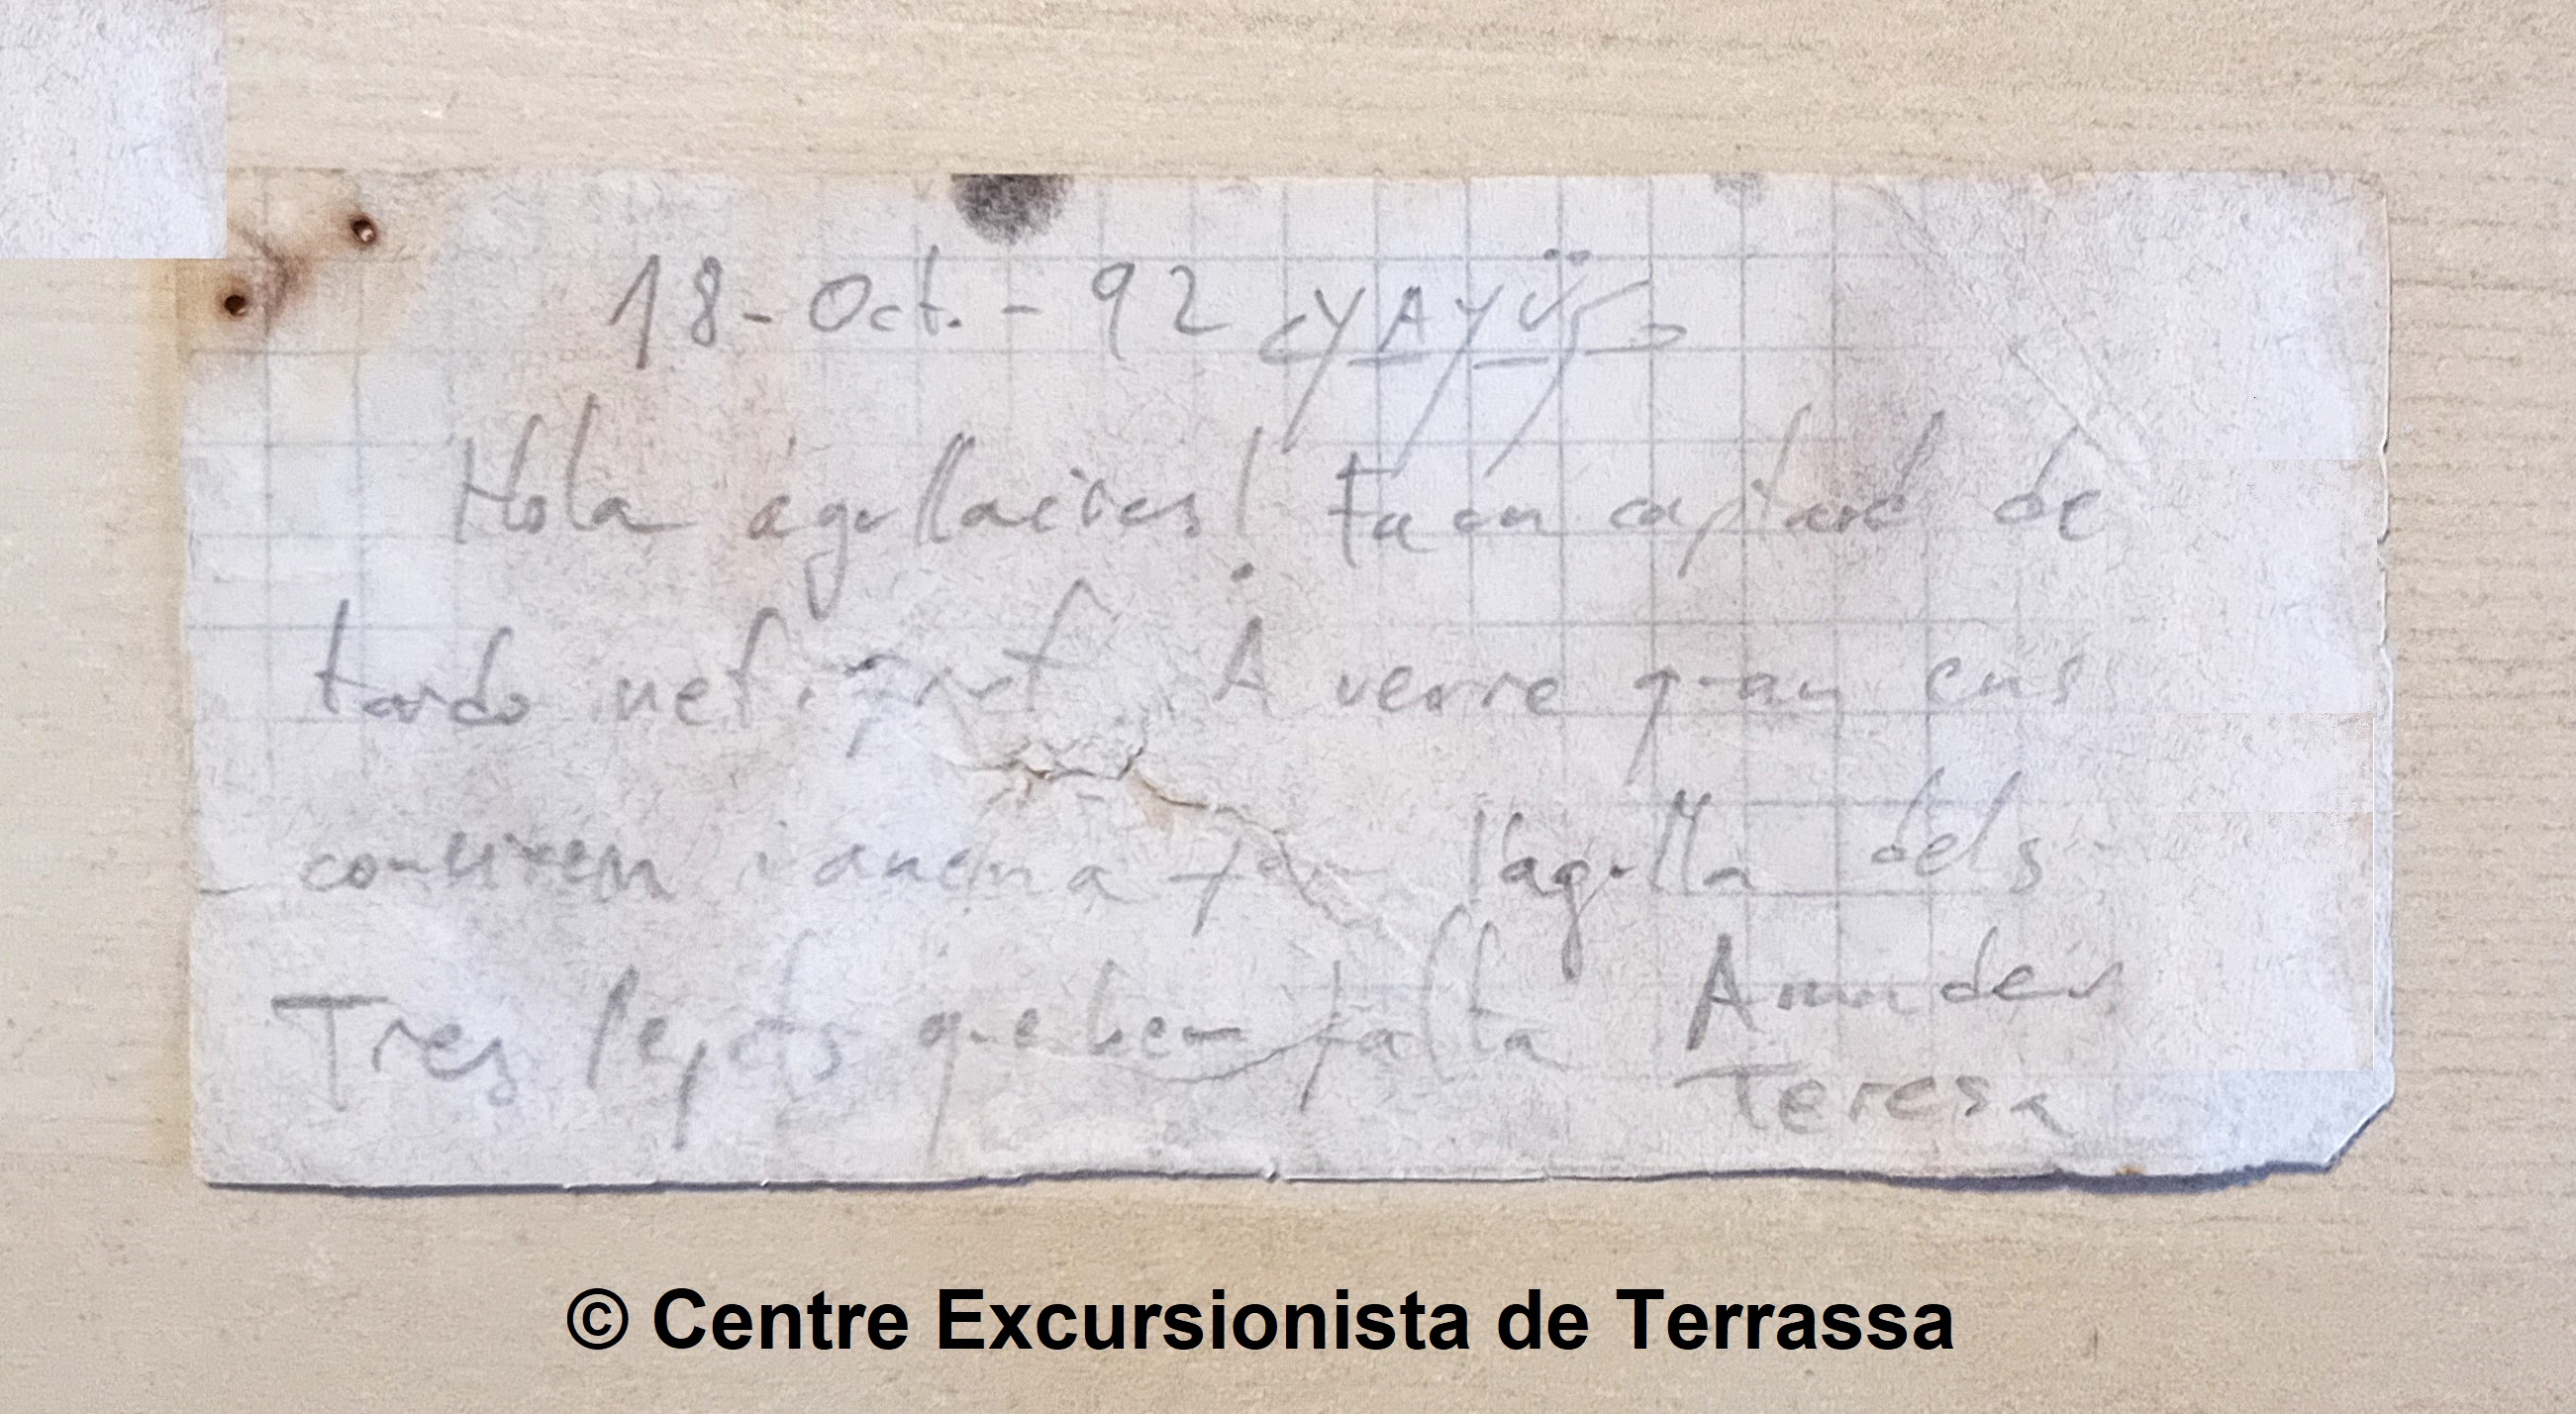 18-Oct.-92 <YAYÜS>
Hola agullaires! Fa un cap tard de
tardo net i fret. A veure q-an ens
coneixem i anem a fer l'agulla dels
Tres Pepets que hem falta
Teresa
© Centre Excursionista de Terrassa